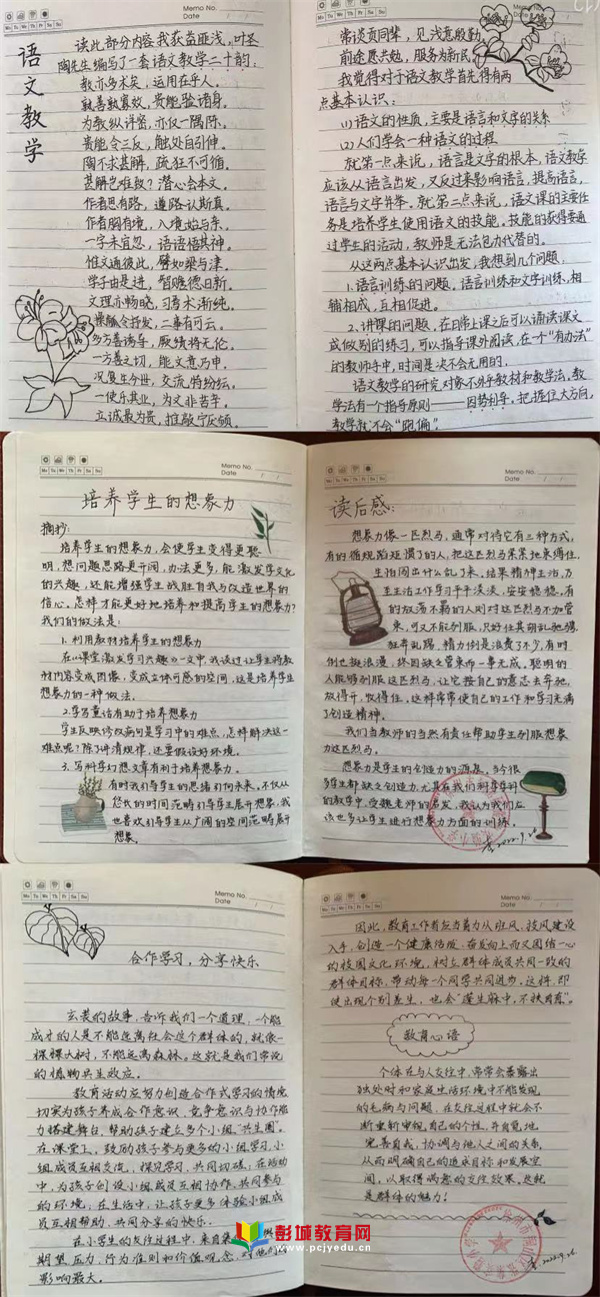 语文教学
读此部分内容我获益匪浅，叶圣
陶先生编写了一套语文教学二十韵：
教亦多术矣，运用在乎人。
孰善孰寡效，贵能验诸身。
为教纵详密，亦仅一隅陈。
贵能令三反，触处自引伸。
陶不求甚解，疏狂不可循。
甚解岂难致？潜心会本文。
作者思有路，遵路认斯真。
作者胸有境，入境始与亲。
一字未宜忽，语语悟其神。
惟文通彼此，譬如梁与津。
学子由是进，智赡德日新。
文理亦畅晓，习焉术渐纯。
操觚令抒发，二事有可云。
多方善诱导，厥绩将无伦。
一方善之切，能文意乃申。
况复生今世，交流特纷纭。
一使乐其业，为文非苦辛。
立诚最为贵，推敲宁厌频。
Date
常谈贡同辈，见浅意殷勤。
前途愿共勉，服务为新民。
我觉得对于语文教学首先得有两
点基本认识：
(1)语文的性质，主要是语言和文字的关系
(2)人们学会一种语文的过程
就第一点来说，语言是文字的根本，语文教学
应该从语言出发，又反过来影响语言，提高语言，
语言与文字并举。就第二点来说，语文课的主要任
务是培养学生使用语文的技能。技能的获得要通
过学生的活动，教师是无法包办代替的。
从这两点基本认识出发，我想到几个问题：
1.语言训练的问题，语言训练和文字训练，相
辅相成，互相促进。
2.讲课的问题，在日常上课之后可以诵读课文
或做别的练习，可以指导课外阅读，在一个“有办法”
的教师手中，时间是决不会无用的。
语文教学的研究对象不外乎教材和教学法，教
学法有一个指导原则——因势利导，把握住大方向，
教学就不会“跑偏”。
Mo Tu We Th Fr Sa Su
Memo No.
Date / /
培养学生的想象力
摘抄：
培养学生的想象力，会使学生变得更聪
明，想问题思路更开阔，办法更多，能激发学文化
的兴趣，还能增强学生战胜自我与改造世界的
信心。怎样才能更好地培养和提高学生的想象力？
我们的做法是：
1.利用教材培养学生的想象力
在《课堂激发学习兴趣》一文中，我谈过让学生将教
材内容变成图像，变成立体可感的空间，这是培养学生
想象力的一种做法。
2.学写童话有助于培养想象力
学生反映修改病句是学习中的难点，怎样解决这一
难点呢？除了讲清规律，还要假设好环境。
3.写科学幻想文章有利于培养想象力。
有时我引导学生的思绪引向未来。不仅从
悠长的时间范畴引导学生展开想象，我
也喜欢引导学生从广阔的空间范畴展开
想象。
Mo Tu We Th Fr Sa Su
Memo No.
Date / /
读后感：
想象力像一匹烈马，通常对待它有三种方式，
有的循规蹈矩惯了的人，把这匹烈马牢牢地束缚住，
生怕闯出什么乱子来。结果精神生活，乃
至生活工作学习平平淡淡，安安稳稳。有
的放荡不羁的人则对这匹烈马不加管
束，可又不能驯服，只好任其胡乱驰骋，
狂奔乱踢，精力倒是浪费了不少，有时
倒也挺浪漫，终因缺乏管束而一事无成。聪明的
人能够驯服这匹烈马，让它按自己的意志去奔驰，
放得开，收得住。这样常常使自己的工作和学习充满
了创造精神。
我们当教师的当然有责任帮助学生驯服想象
力这匹烈马。
想象力是学生的创造力的源泉。当今很
多学生都缺乏创造力，尤其在我们科学学科
的教学中，受魏老师的启发，我认为我们应
该也多让学生进行想象力方面的训练。
2022.9.26
Mo Tu We Th Fr Sa Su
Memo No.
Date / /
合作学习，分享快乐
玄奘的故事，告诉我们一个道理，一个能
成才的人是不能远离社会这个群体的，就像一
棵棵大树，不能远离森林。这就是我们常说
的植物共生效应。
教育活动应努力创造合作式学习的情境
切实为孩子养成合作意识，竞争意识与协作能
力搭建舞台，帮助孩子建立多个小组“共生圈”。
在课堂上，鼓励孩子参与更多的小组学习，小
组成员互相交流，探究学习，共同切磋；在活动
中，为孩子创设小组成员互相协作，共同参与
的环境；在生活中，让孩子更多体验小组成
员互相帮助，共同分享的快乐。
在小学生的交往过程中，来自
期望压力，行为准则和价值观念，对他们
影响最大。
Mo Tu We Th Fr Sa Su
Memo No.
Date / /
因此，教育工作者应当着力从班风，校风建设
入手，创造一个健康活泼，奋发向上而又团结一心
的校园文化环境，树立群体成员共同一致的
群体目标，带动每一个同学共同进步。这样，即
使出现个别差生，也会“蓬生麻中，不扶自直”。
教育心语
个体在与人交往中，常常会暴露出
独处时和家庭生活环境中不能发现
的毛病与问题，在交往过程中就会不
断重新审视自己的个性，并自觉地
完善自我，协调与他人之间的关系，
从而明确自己的追求目标和发展空
间，以取得满意的交往效果。这就
是群体的魅力！
2022.9.26.
彭城教育网
www.pcjyedu.cn